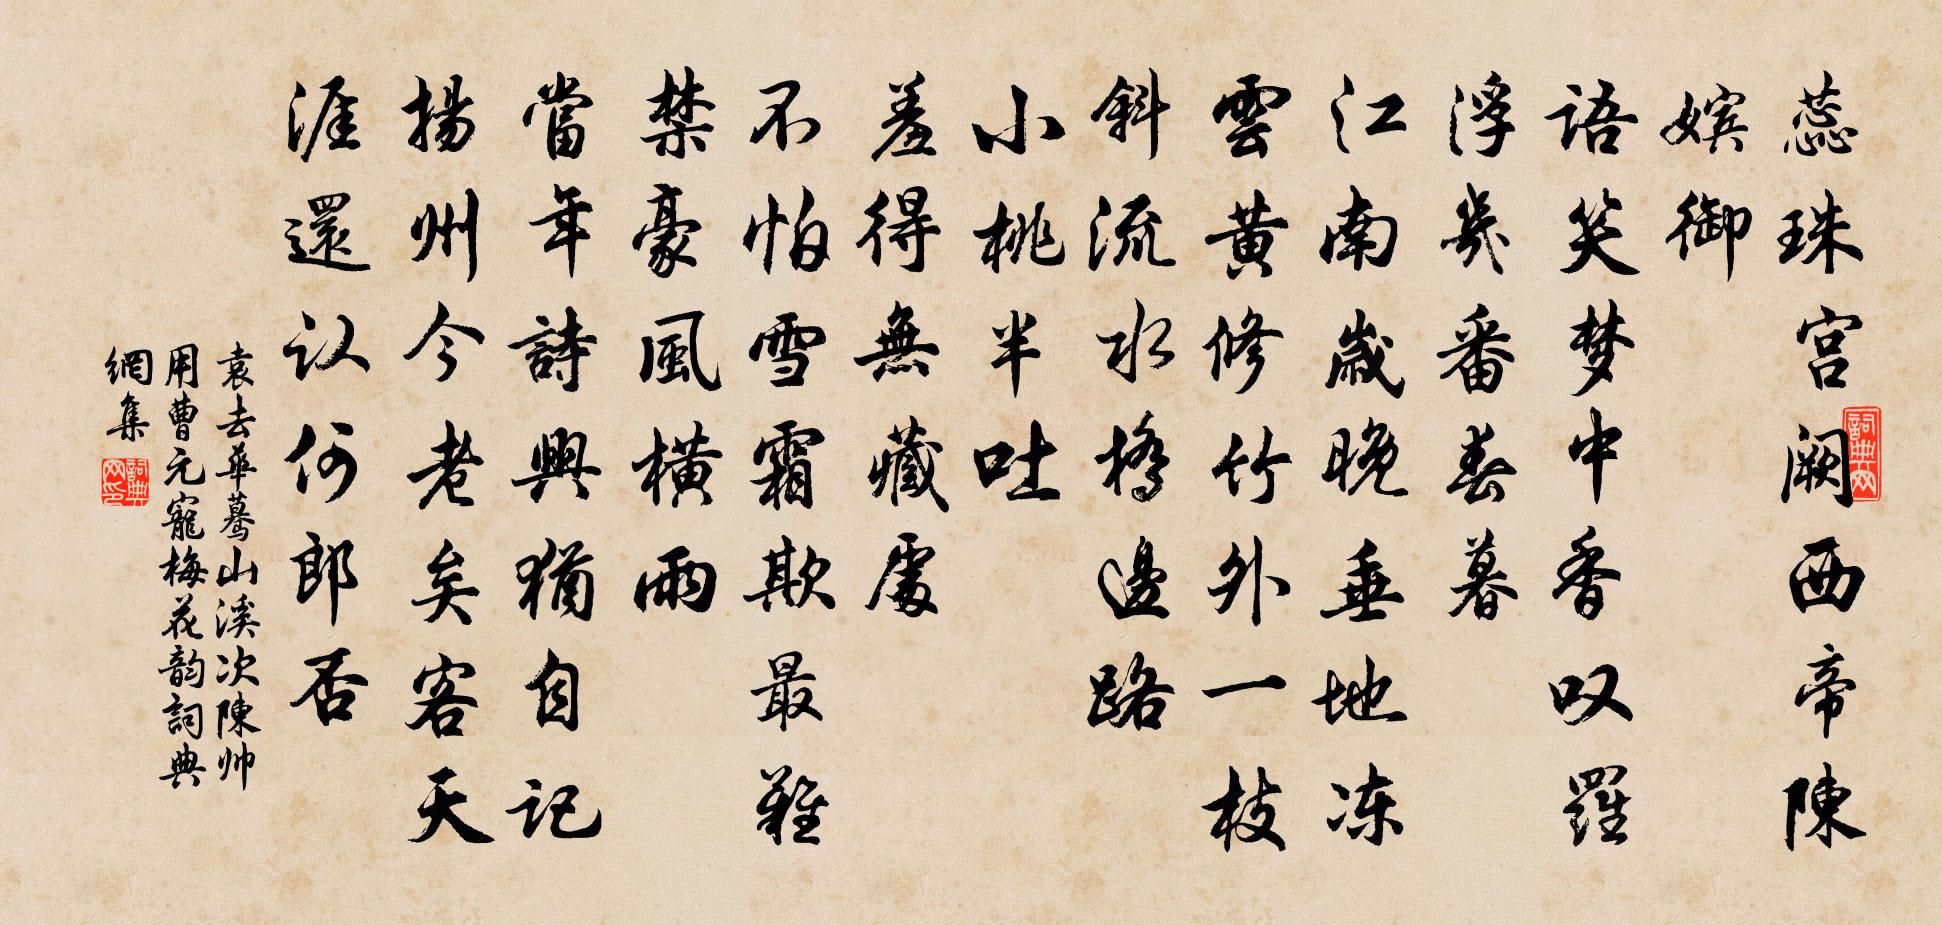 蕊珠宫阙西帝陳
嫔御
語笑梦中香叹羅
浮幾番春暮
江南歲晚垂地冻
雲黄修竹外一枝
斜流水橋邊路
小桃半吐
羞得無藏處
不怕雪霜欺最難
禁豪風横雨
當年詩興猶自记
揚州今老矣客天
涯還认何郎否
袁去華蓦山溪次陳帅
用曹元寵梅花韵詞典
網集
詞典网
詞典网印